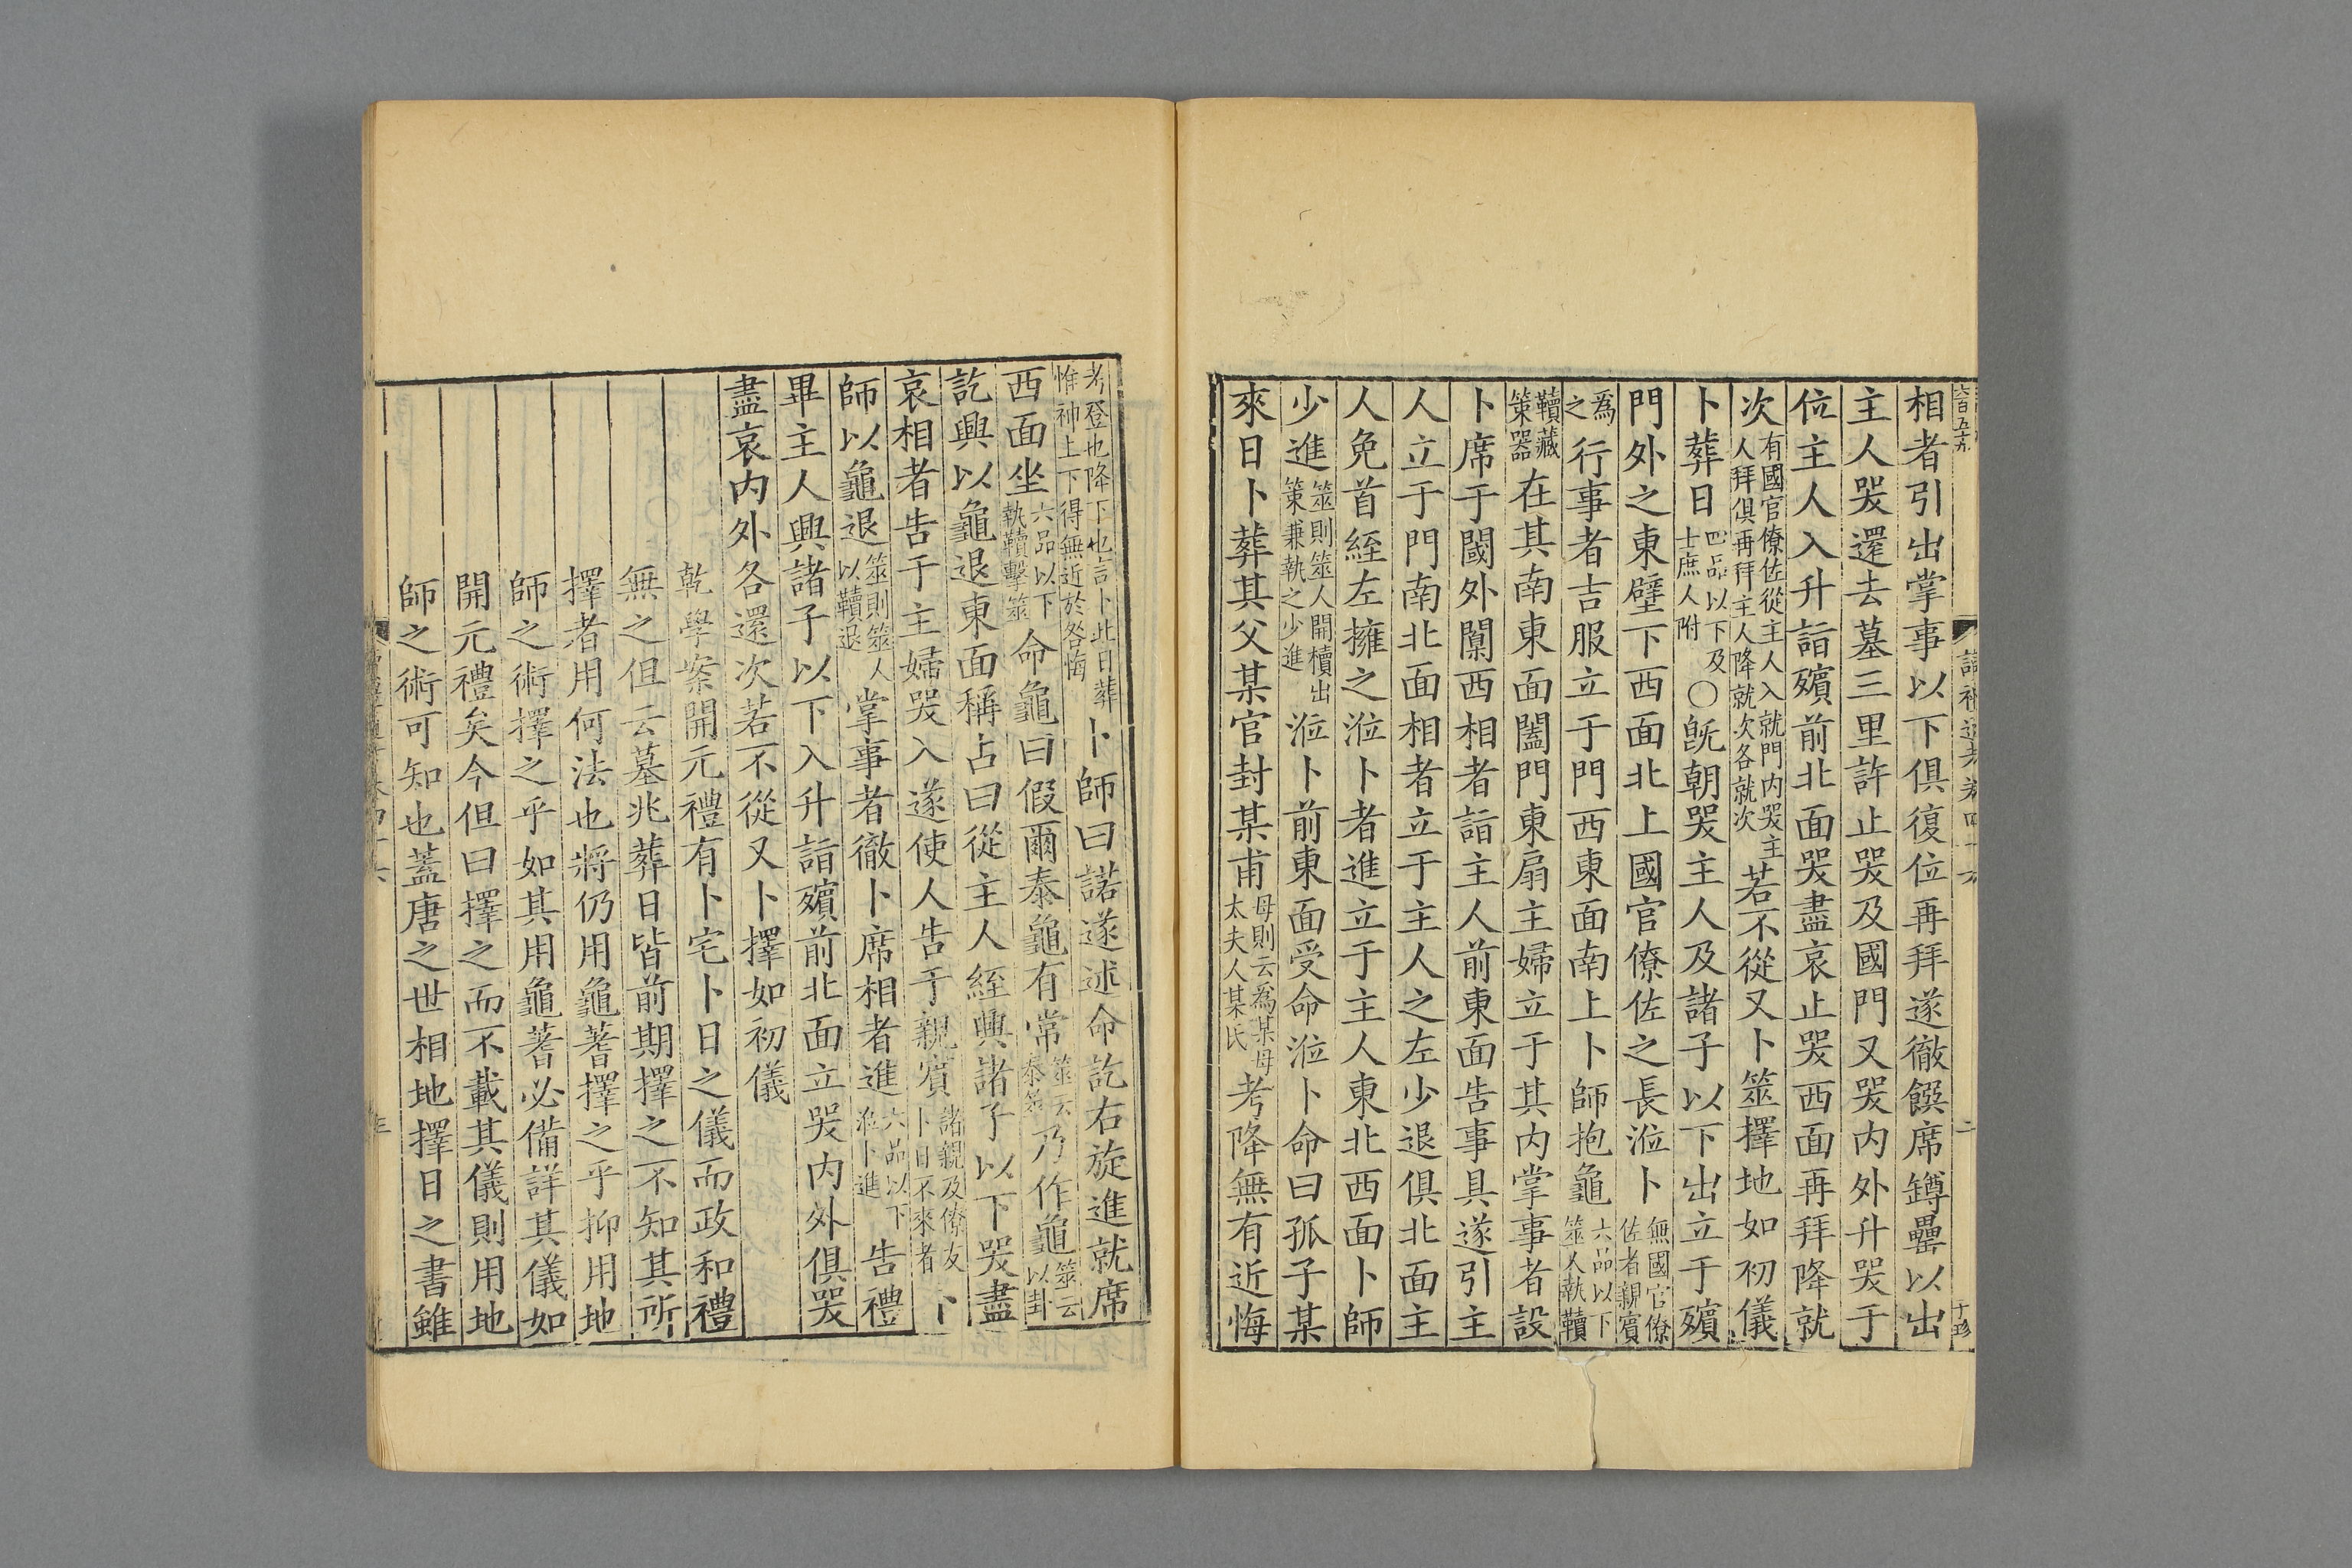 相者引出掌事以下俱復位再拜遂徹饌席罇罍以出
主人哭還去墓三里許止哭及國門又哭内外升哭于
位主人入升詣殯前北面哭盡哀止哭西面再拜降就
次有國官僚佐從主人入就門内哭主人拜俱再拜主人降就次各就次若不從又卜筮擇地如初儀
卜葬日四品以下及士庶人附〇旣朝哭主人及諸子以下出立于殯
門外之東壁下西面北上國官僚佐之長涖卜無國官僚佐者親賓
爲之行事者吉服立于門西東面南上卜師抱龜六品以下筮人執韇
韇藏筴器在其南東面闔門東扇主婦立于其内掌事者設
卜席于閾外闑西相者詣主人前東面告事具遂引主
人立于門南北面相者立于主人之左少退俱北面主
人免首絰左擁之涖卜者進立于主人東北西面卜師
少進筮則筮人開櫝出筴兼執之少進涖卜前東面受命涖卜命曰孤子某
來日卜葬其父某官封某甫母則云爲某母太夫人某氏考降無有近悔
考登也降下也言卜此日葬惟神上下得無近於咎悔卜師曰諾遂述命訖右旋進就席
西面坐六品以下執韇擊筮命龜曰假爾泰龜有常筮云泰筮乃作龜筮云以卦
訖興以龜退東面稱占曰從主人絰興諸子以下哭盡
哀相者告于主婦哭入遂使人告于親賓諸親及僚友卜日不來者卜
師以龜退筮則筮人以韇退掌事者徹卜席相者進六品以下涖卜進告禮
畢主人興諸子以下入升詣殯前北面立哭内外俱哭
盡哀内外各還次若不從又卜擇如初儀
乾學案開元禮有卜宅卜日之儀而政和禮
無之但云墓兆葬日皆前期擇之不知其所
擇者用何法也將仍用龜蓍擇之乎抑用地
師之術擇之乎如其用龜蓍必備詳其儀如
開元禮矣今但曰擇之而不載其儀則用地
師之術可知也蓋唐之世相地擇日之書雖